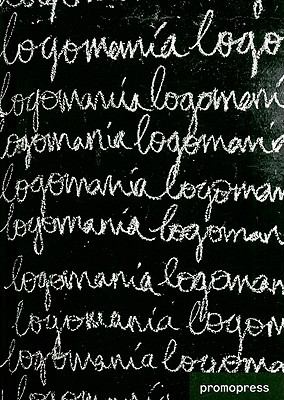 logomanía logo
logomanía logomaní
ogomanía logomanía
logomanía logoman
logomanía logoman
logomanía logoman
logomanía logom
logomanía logoma
logomanía
promopress